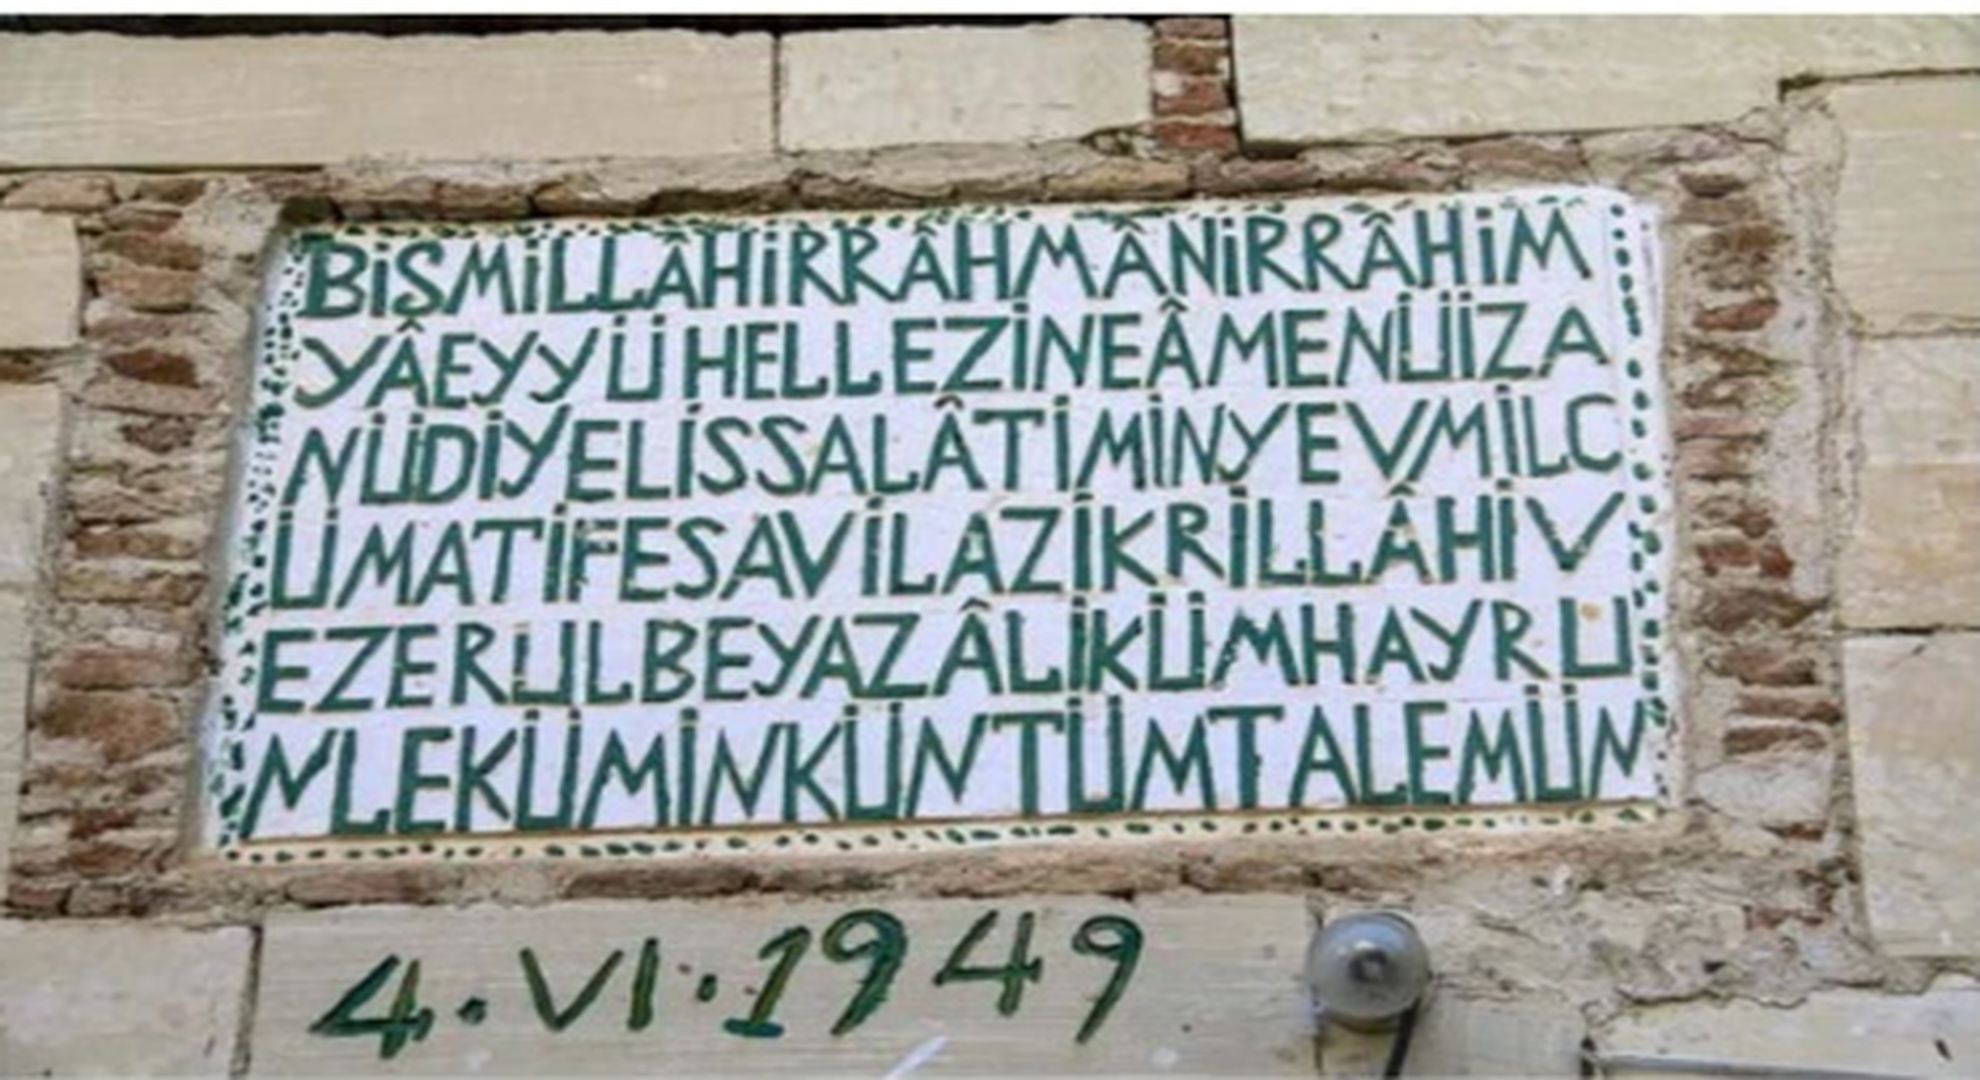 BİSMİLLÂHİRRÂHMÂNİRRÂHİM
YÂEYYÜHELLEZİNEÂMENÜİZA
NÜDİYELİSSALÂTİMİNYEVMİLC
ÜMATİFESAVİLAZİKRİLLÂHİV
EZERÜLBEYAZÂLİKÜMHAYRU
NLEKÜMİNKÜNTÜMTALEMÜN
4.VI.1949